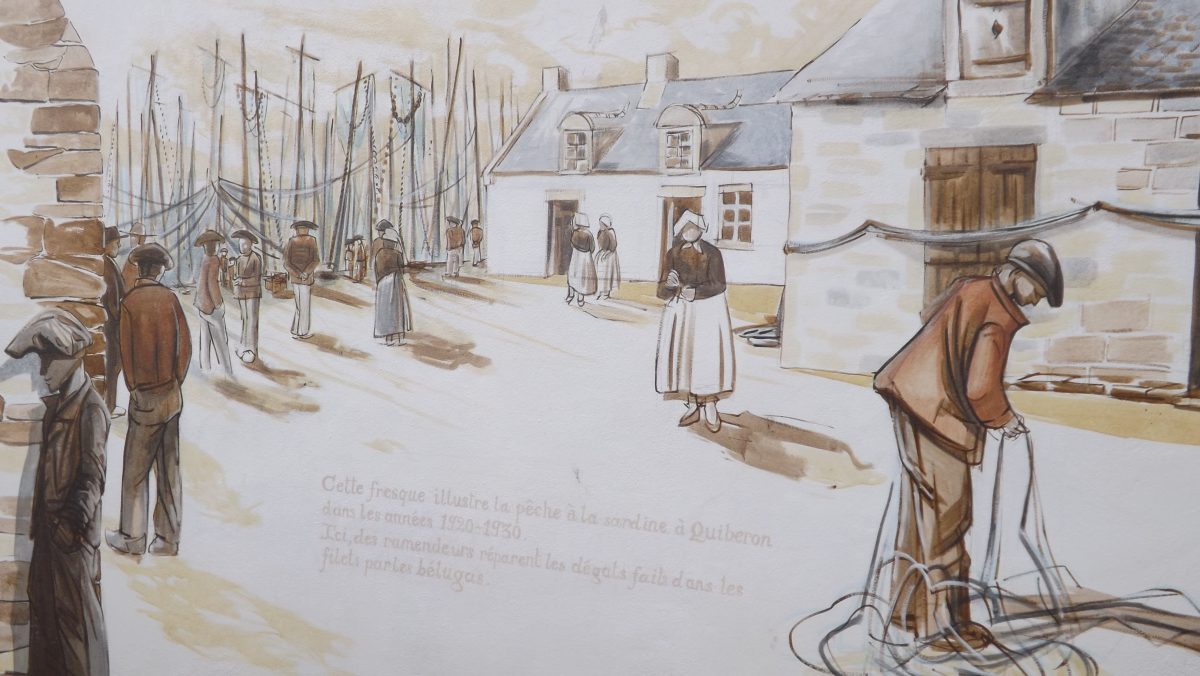 Cette fresque illustre la pêche à la sardine à Quiberon
dans les années 1920-1930.
Ici, des ramendeurs réparent les dégats faits dans les
filets par les bélugas.